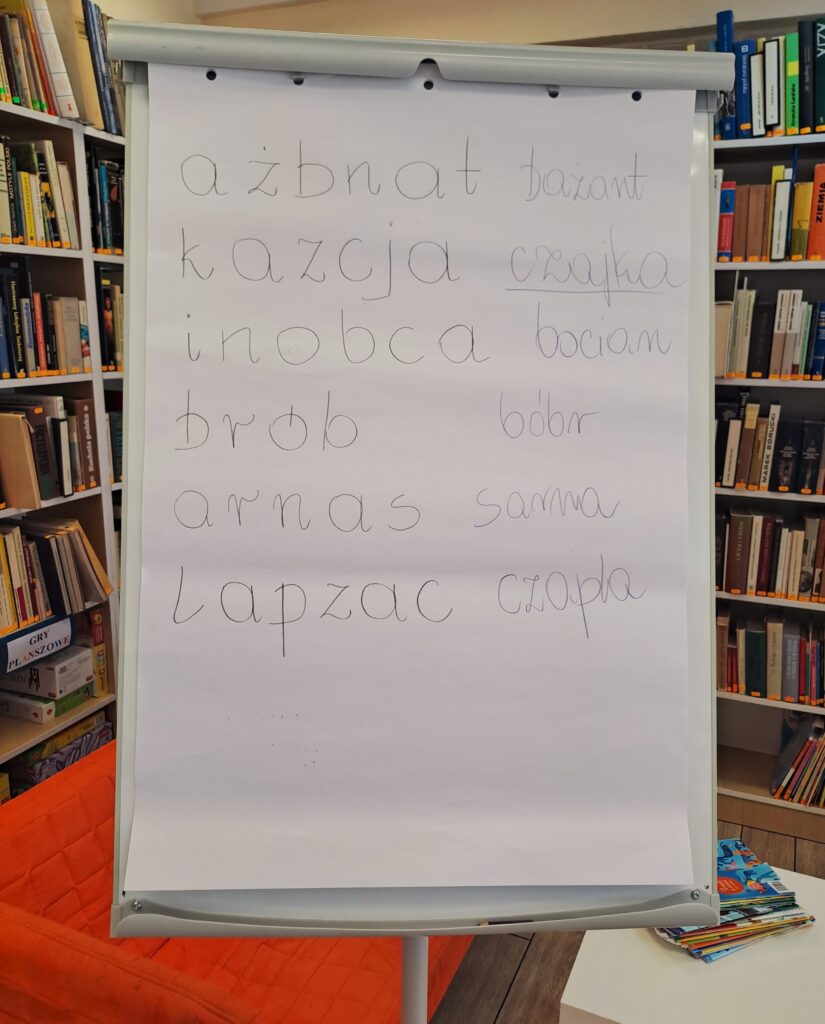 ażbnat bażant
kazcja czajka
inobca bocian
brob bóbr
arnas sarna
lapzac czapla
GRY
PLANSZOWE
ZIEMIA
MAREK BORUCKI